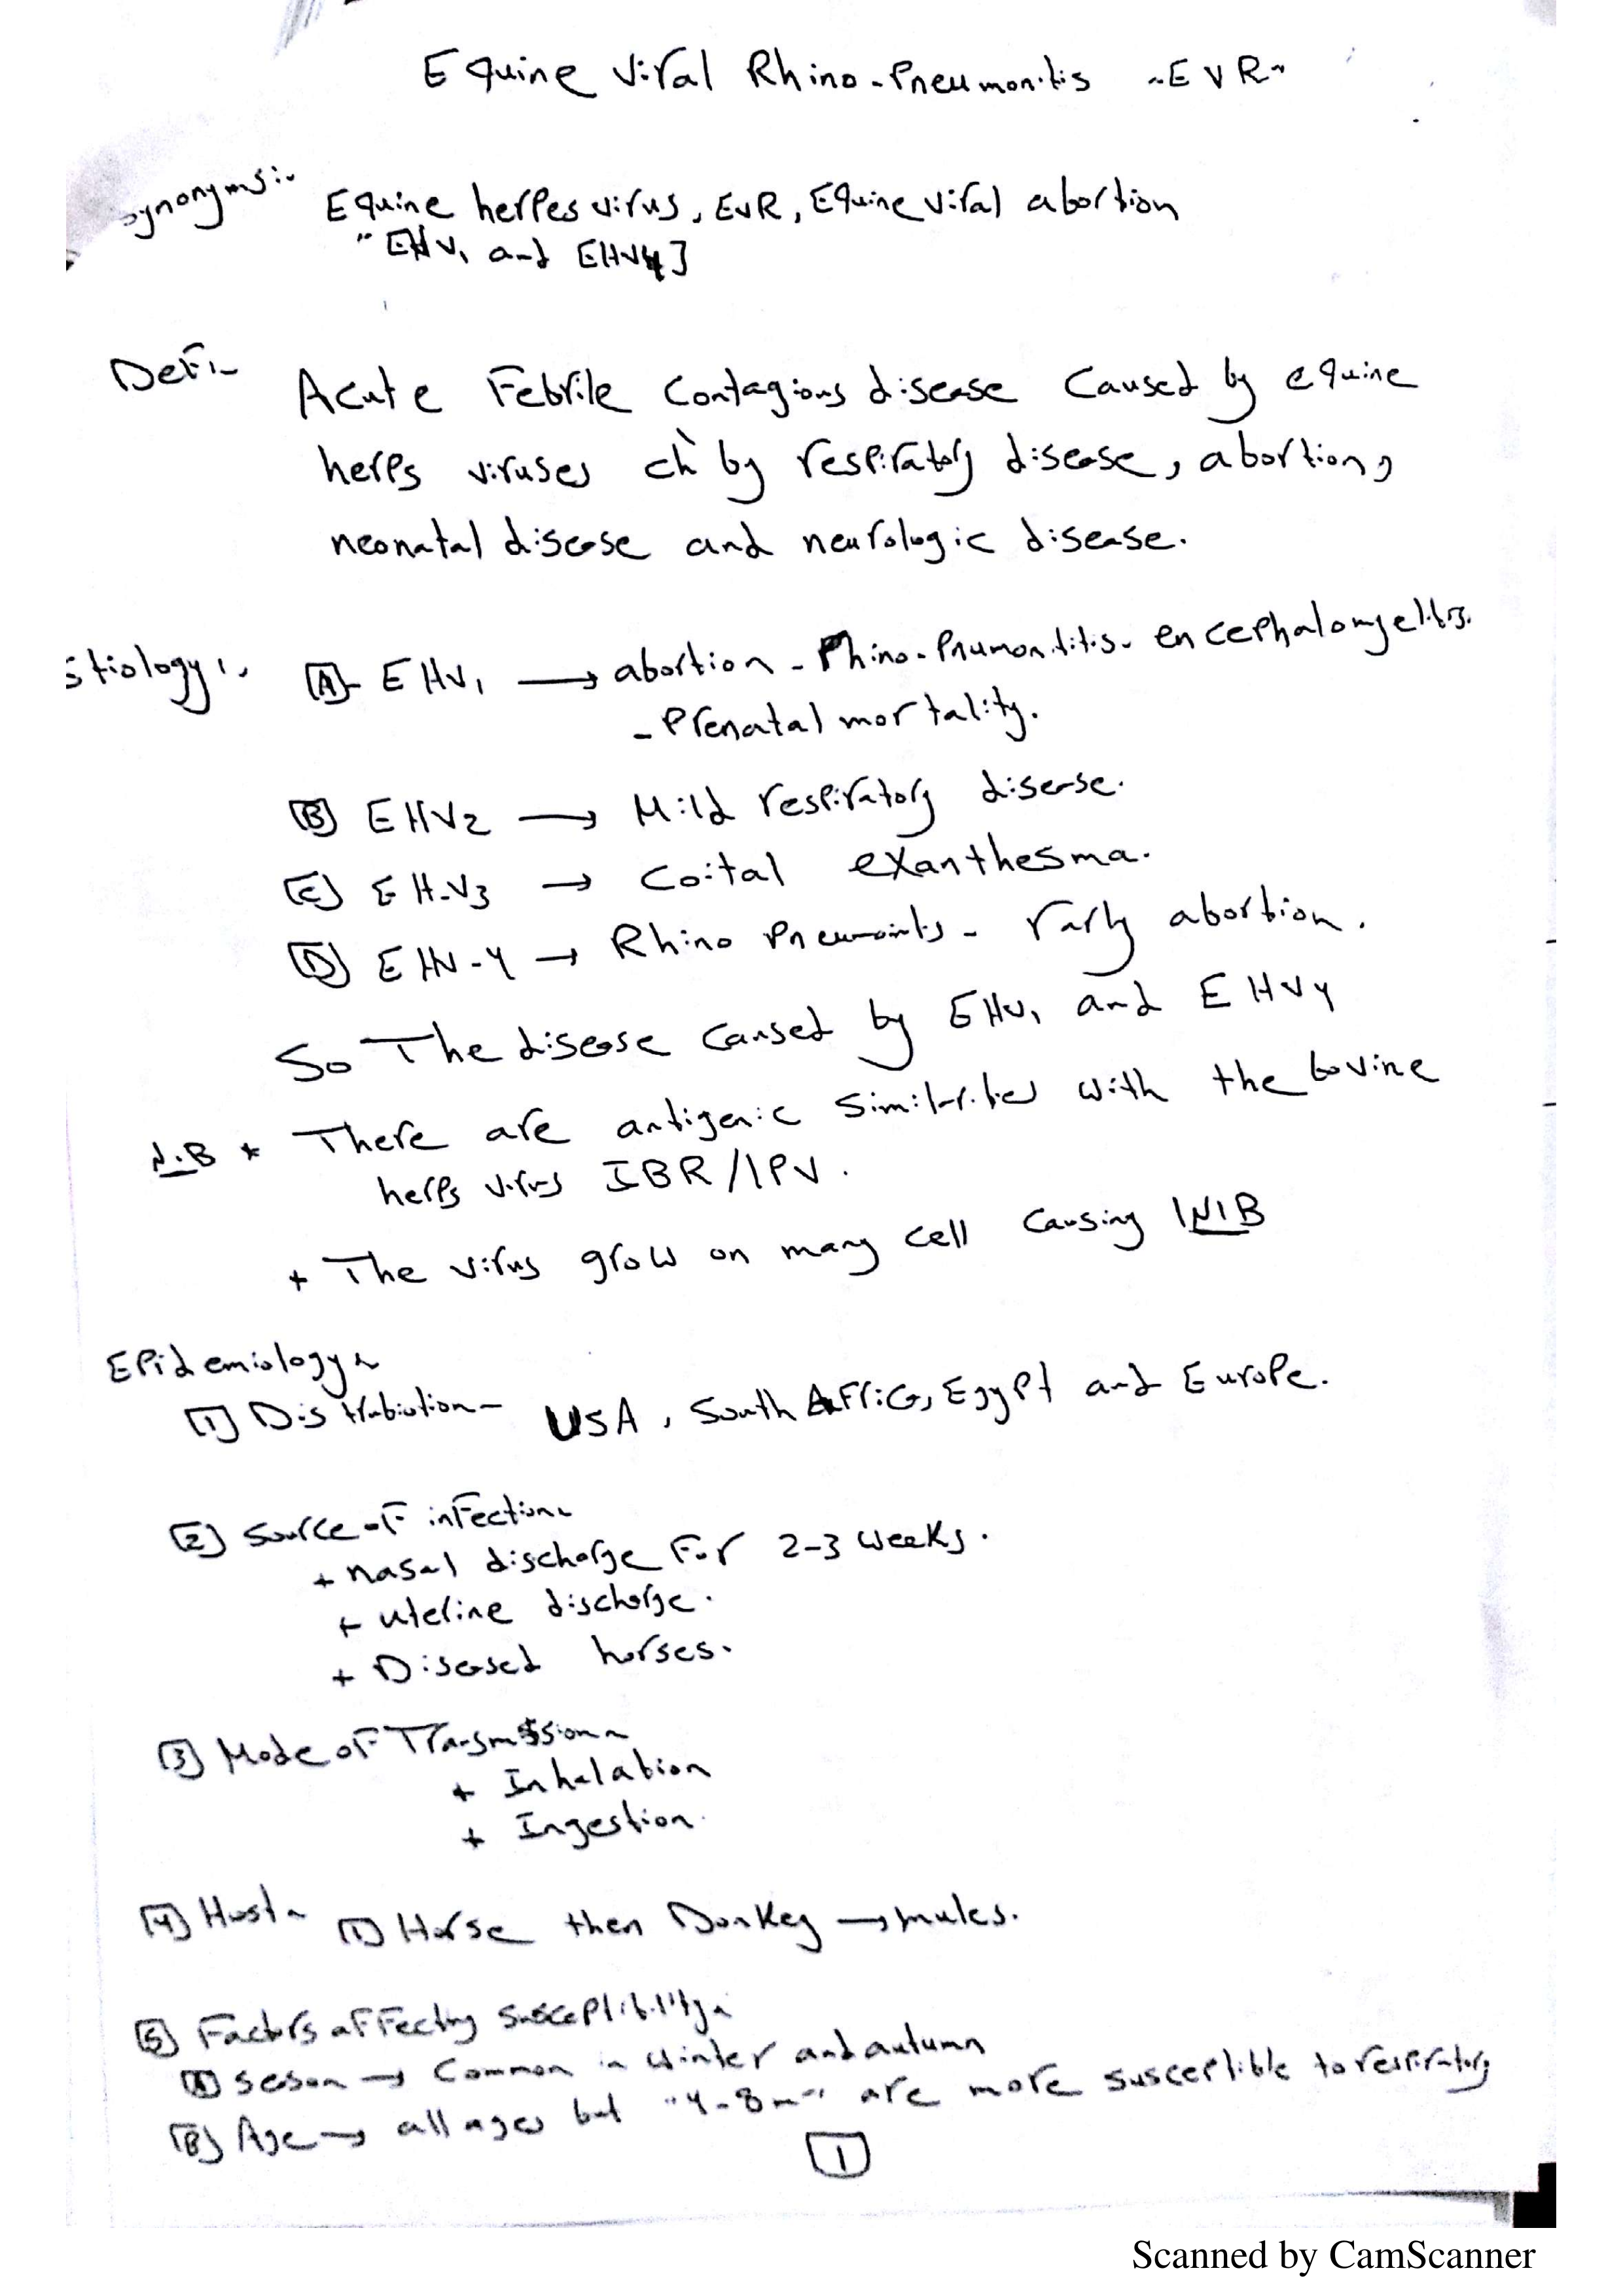 Equine Viral Rhino-Pneumonitis "EVR"
synonyms:-
Equine herpes virus, EVR, Equine viral abortion
"EHV1 and EHV4]
Def:-
Acute Febrile Contagious disease Caused by equine
herps viruses ch by respiratory disease, abortion,
neonatal disease and neurologic disease.
etiology:-
[A]- EHV1 → abortion - Rhino-Pnumontitis - encephalomyelitis.
- Prenatal mortality.
[B] EHV2 → Mild respiratory disease.
[C] EH-V3 → Coital exanthesma.
[D] EHV-4 → Rhino Pneumonitis - rarly abortion.
So The disease caused by EHV1 and EHV4
N.B * There are antigenic similarities with the bovine
herps virus IBR/IPV.
+ The virus grow on many cell causing INIB
Epidemiology:-
[1] Distrubiotion- USA, South AFrica, Egypt and Europe.
[2] Source of infection:-
+ nasal discharge For 2-3 weeks.
+ uterine discharge.
+ Diseased horses.
[3] Mode of Transmission:-
+ Inhalation
+ Ingestion.
[4] Host:- [1] Horse then Donkey → mules.
[5] Factors affecting susceptibility:-
[A] season → Common in winter and autumn
[B] Age → all ages but "4-8m" are more susceptible to respiratory
[1]
Scanned by CamScanner